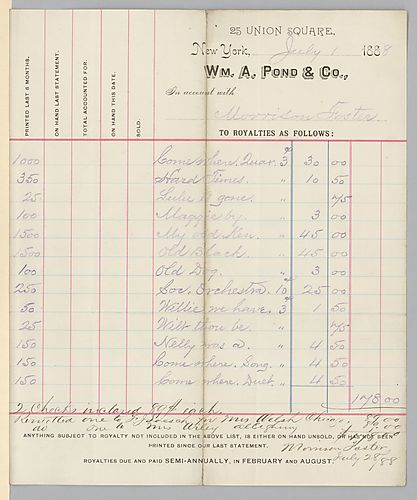 25 UNION SQUARE,
New York, July 1 1888
WM. A. POND & CO.,
In account with
Morrison Foster
TO ROYALTIES AS FOLLOWS:
PRINTED LAST 6 MONTHS.
ON HAND LAST STATEMENT.
TOTAL ACCOUNTED FOR.
ON HAND THIS DATE.
SOLD.
1000 Come where. Quar. 3 30 00
350 Hard Times. " 10 50
25 Lulu is gone. " 75
100 Maggie by. " 3 00
1500 My old Ken. " 45 00
1500 Old Black. " 45 00
100 Old Dog. " 3 00
250 Soc. Orchestra. 10 25 00
50 Willie we have. 3 1 50
25 Wilt thou be. " 75
150 Nelly was a. " 4 50
150 Come where. Song. " 4 50
150 Come where. Duet. " 4 50
178.00
2 Checks inclosed 89 each.
Remitted one to Mrs Welsh Chicago 89.00
do one to Mrs Wiley Allegheny 89.00
ANYTHING SUBJECT TO ROYALTY NOT INCLUDED IN THE ABOVE LIST, IS EITHER ON HAND UNSOLD, OR HAS NOT BEEN
PRINTED SINCE OUR LAST STATEMENT. Morrison Foster
ROYALTIES DUE AND PAID SEMI-ANNUALLY, IN FEBRUARY AND AUGUST. July 28/88